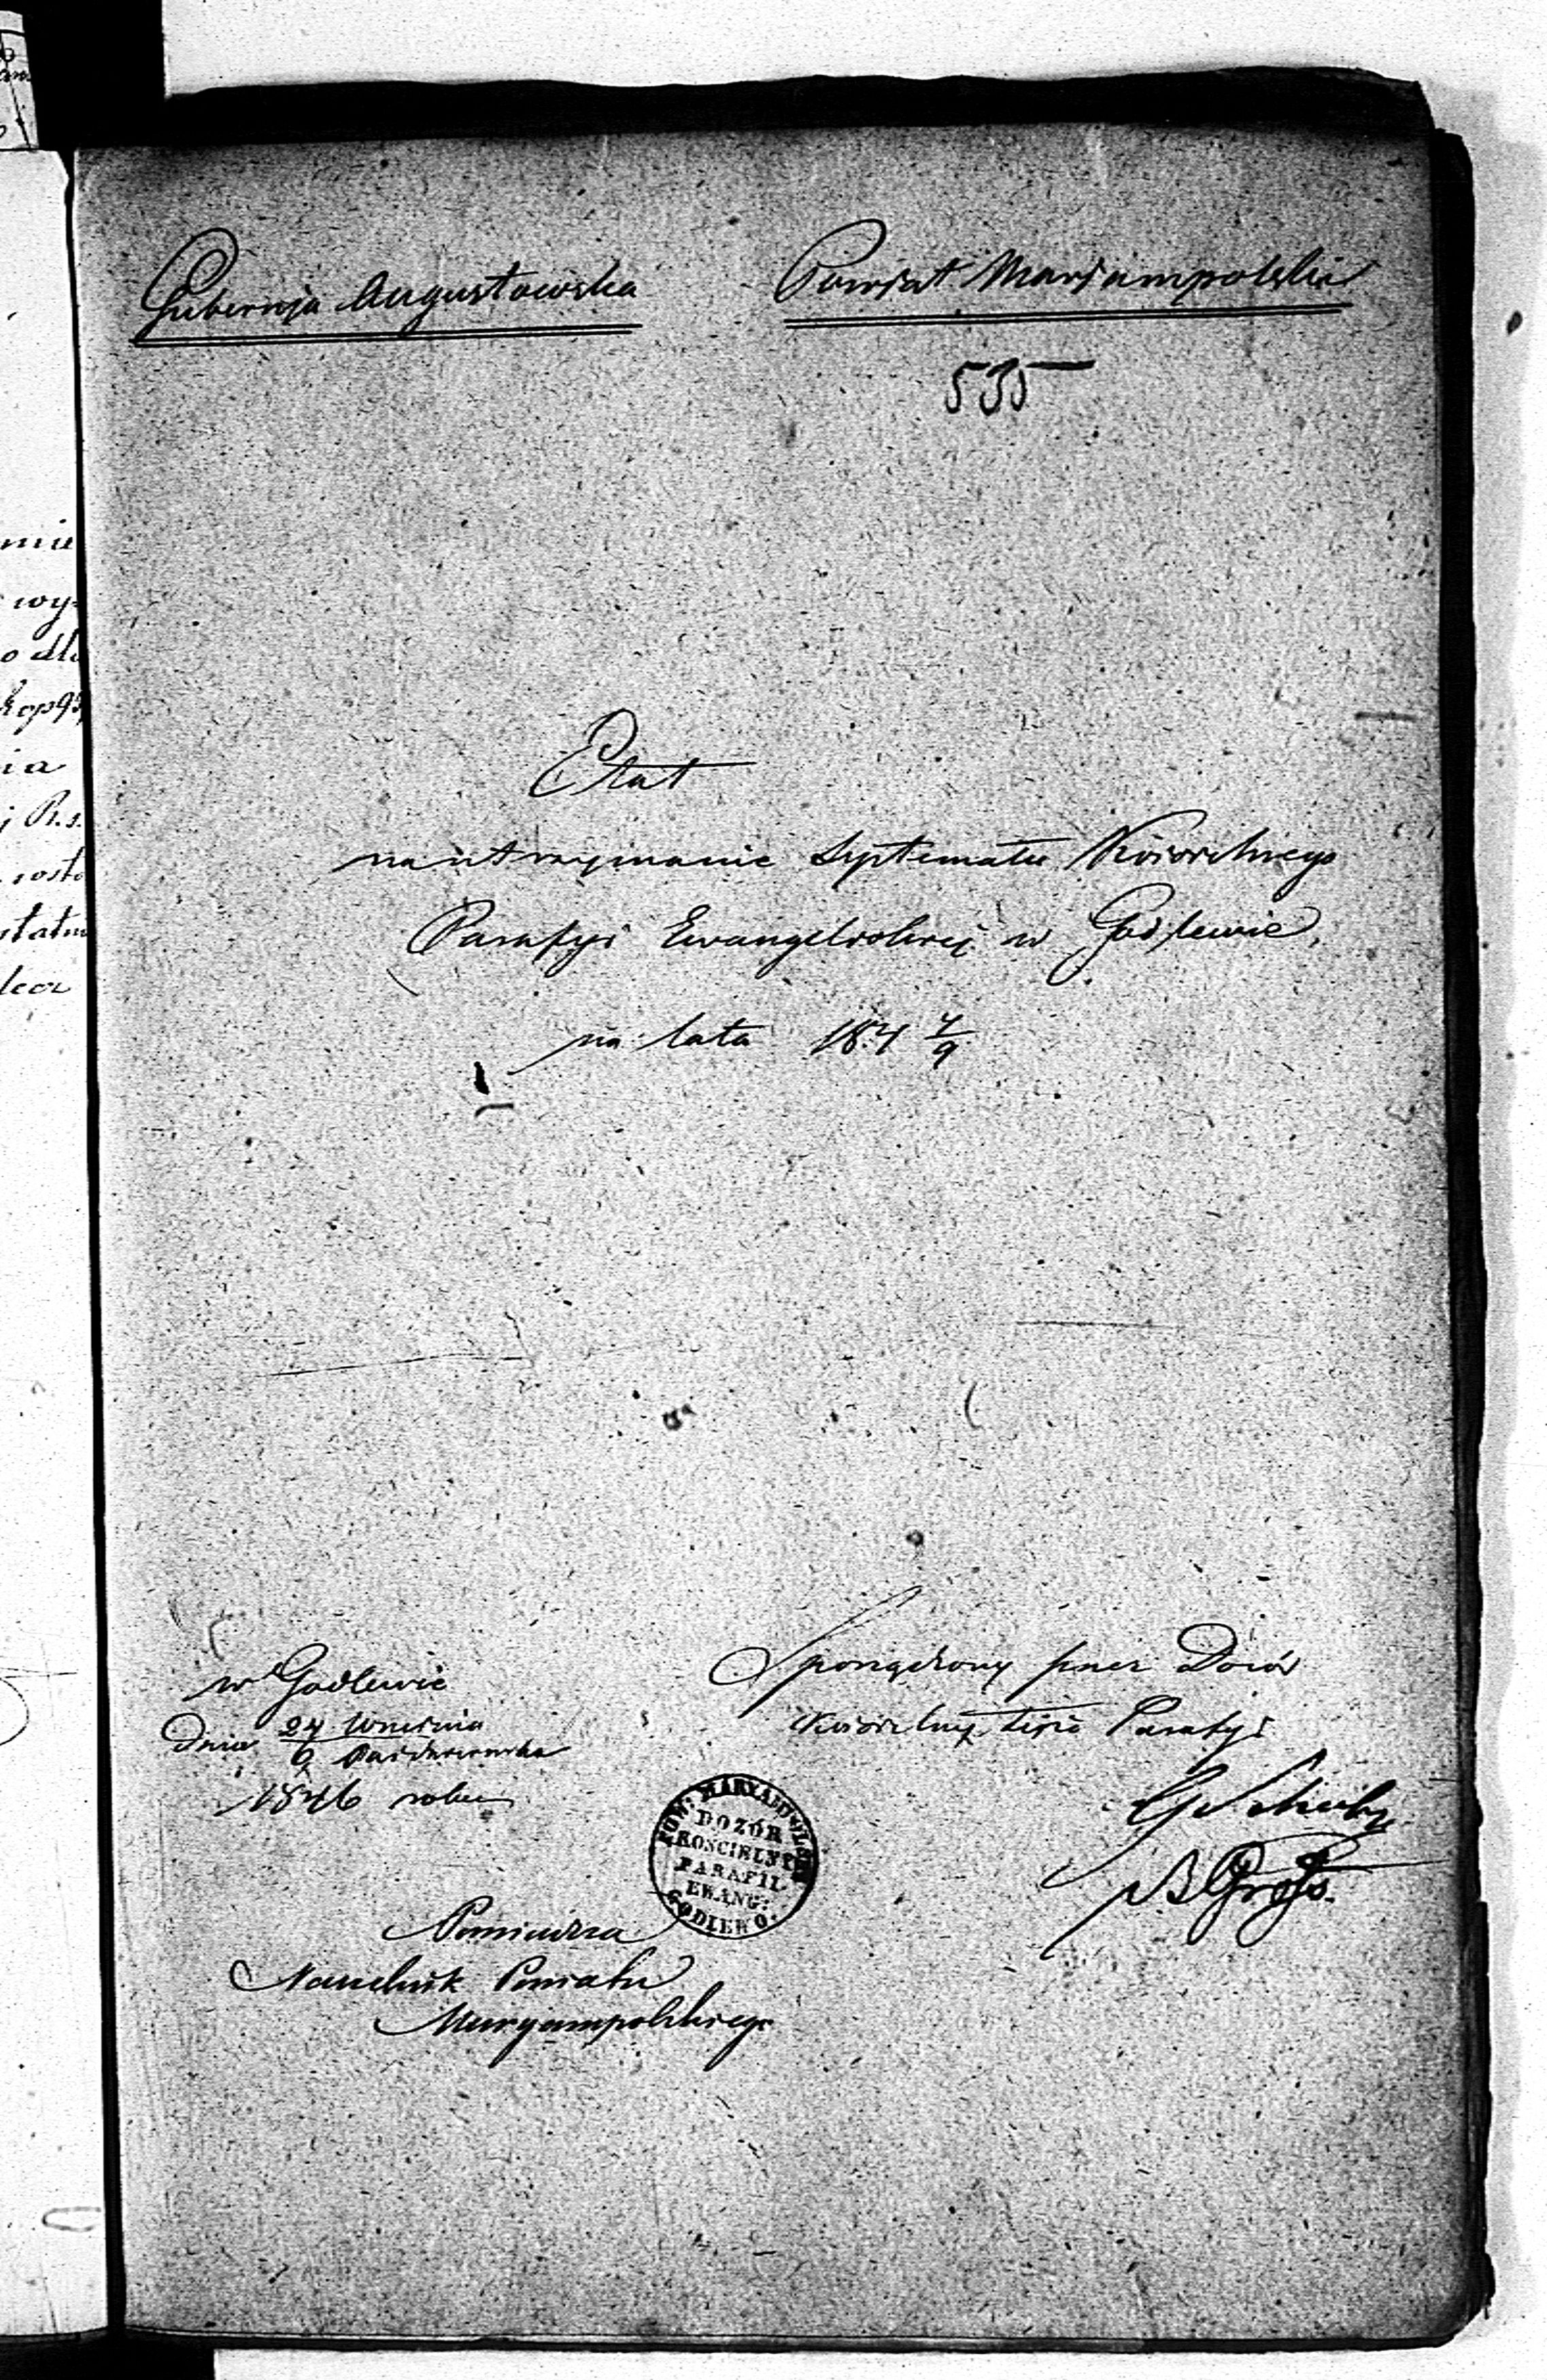 Gubernja Augustowska
Powiat Marjampolski
535
Etat
na utrzymanie Systematu Kościelnego
Parafyi Ewangelickiej w Godlewie,
na lata 184 7/9
w Godlewie
Dnia 24 Września
6 Października
1846 roku
Sporządzony przez Dozór
Kościelny tejże Parafyi
B Gross.
POW: MARYAMPOLSKI
DOZÓR
KOSCIELNY
PARAFII.
EWANG:
GODLEWO.
Poswiadcza
Naczelnik Powiatu
Maryampolskiego
mie
wy=
o dla
ia
R.s.